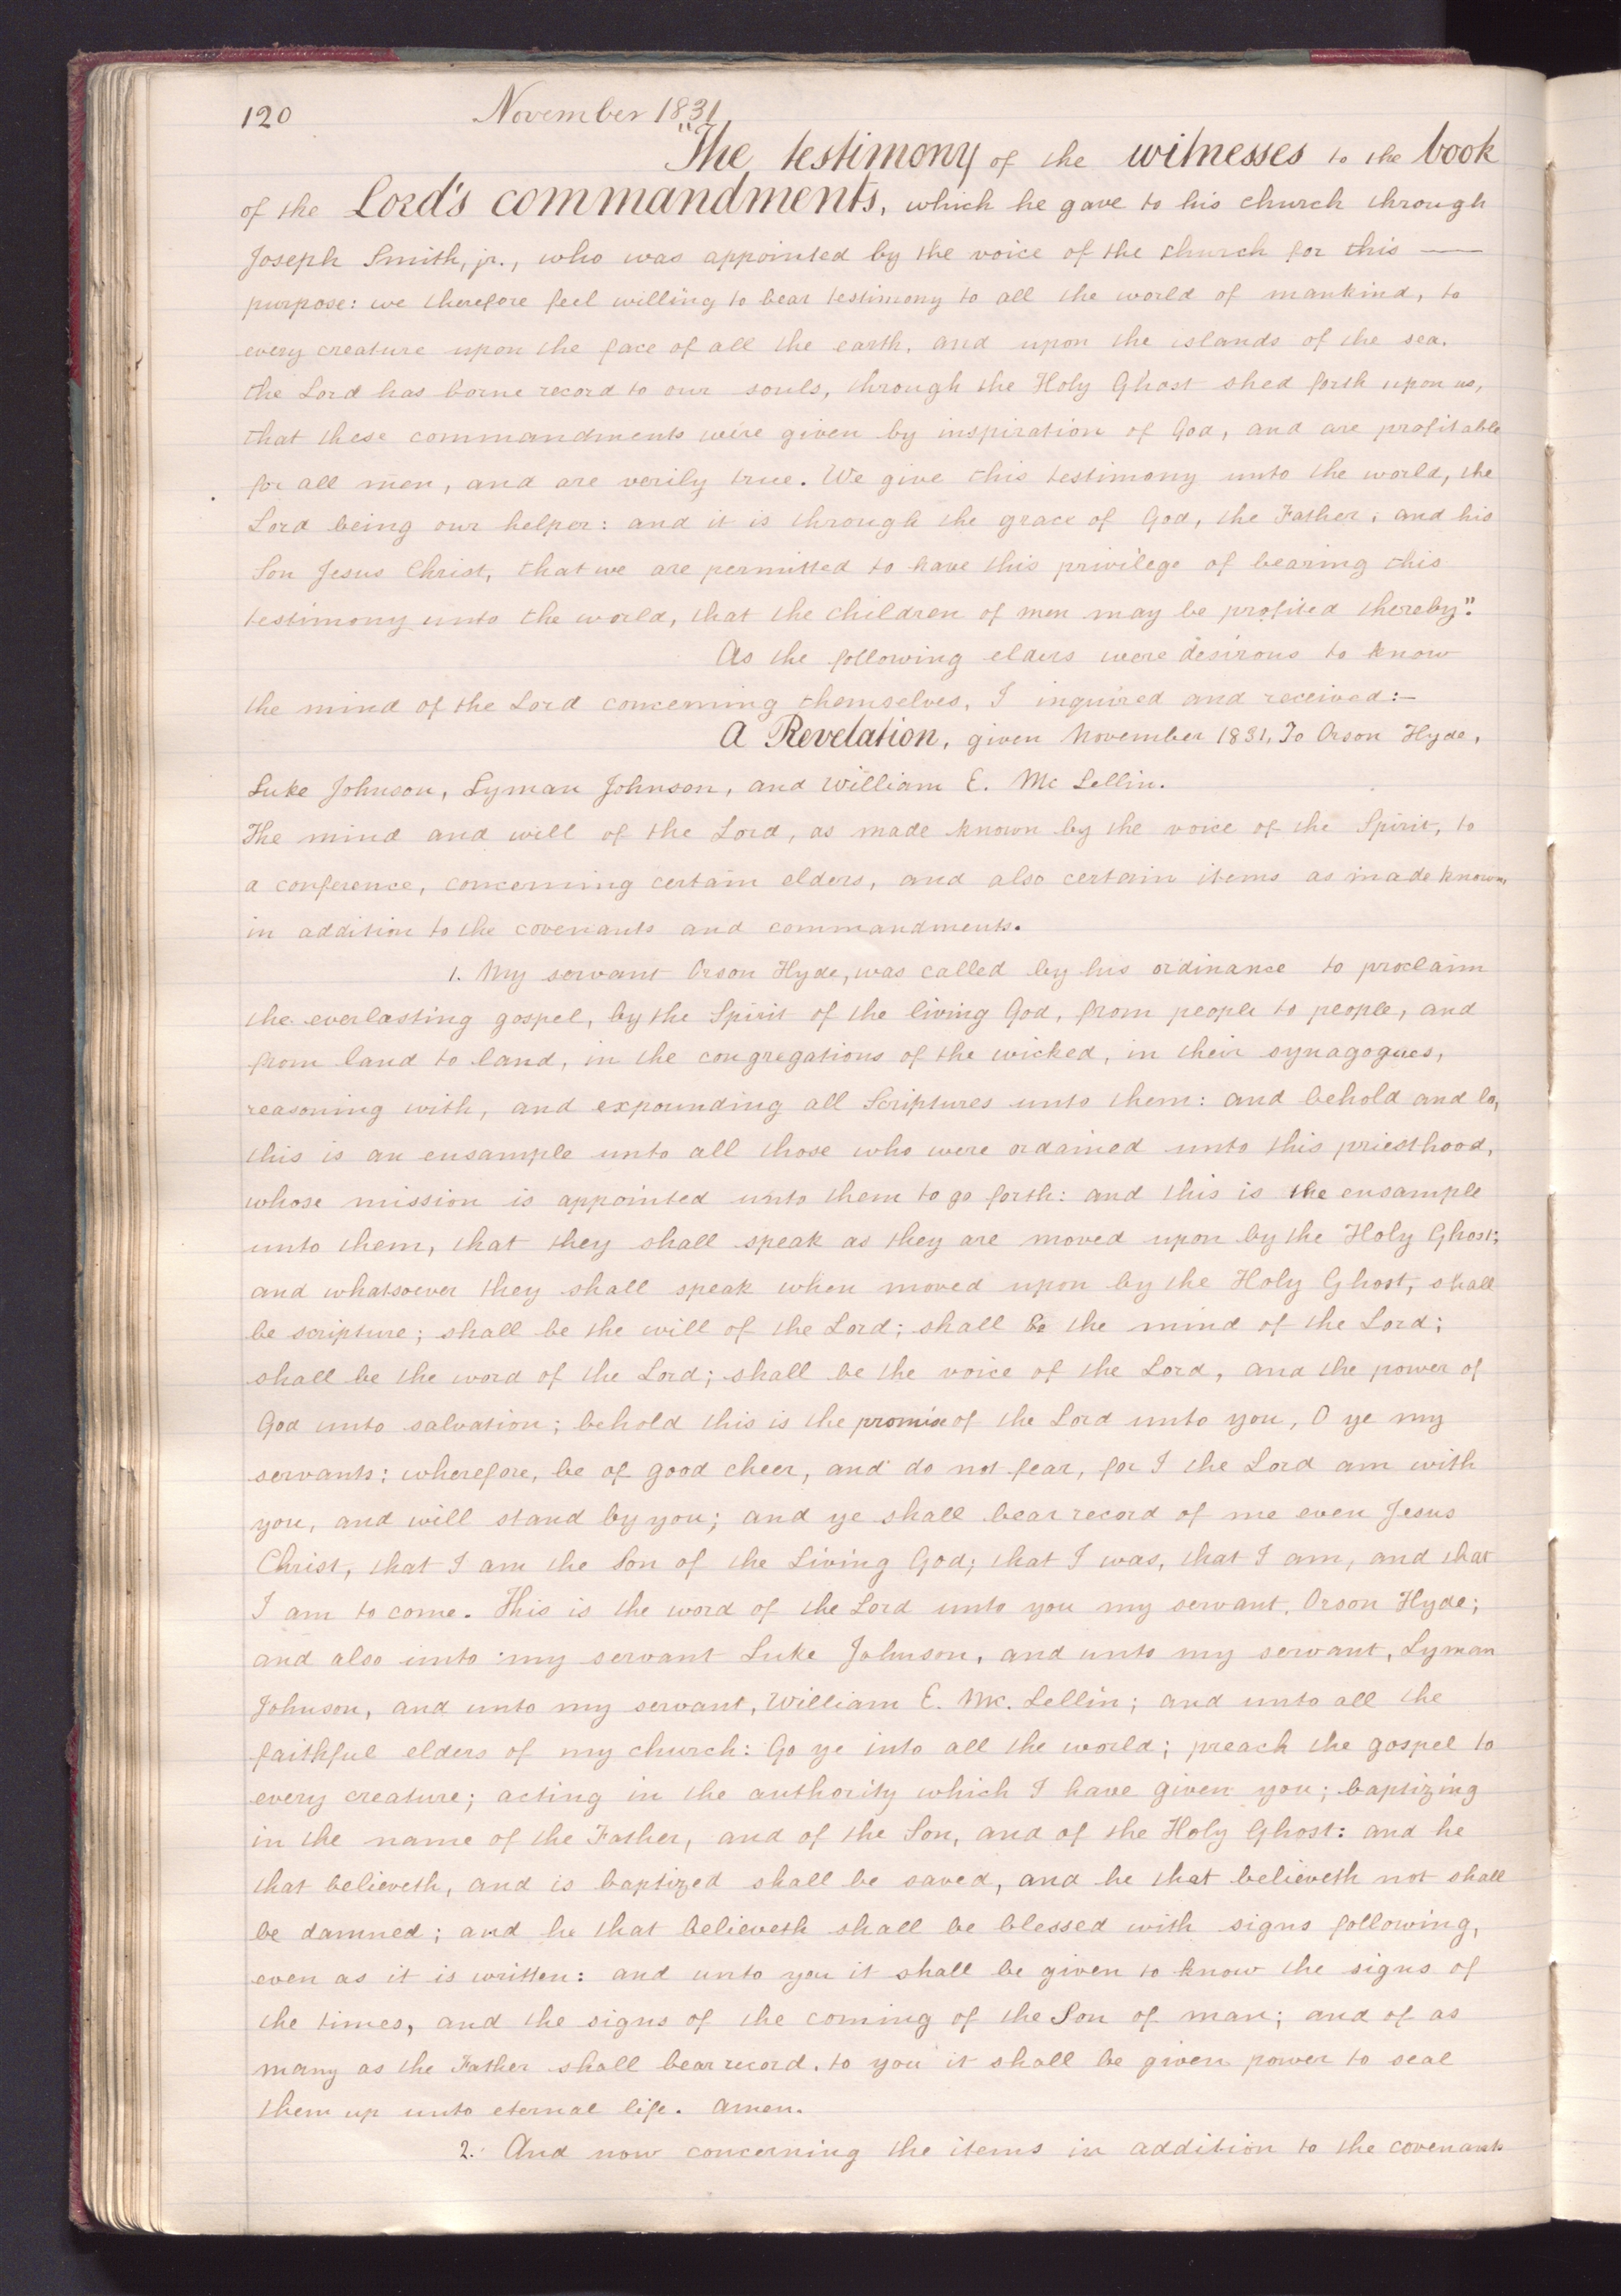 120 November 1831
"The testimony of the witnesses to the book
of the Lord's commandments, which he gave to his church through
Joseph Smith, jr., who was appointed by the voice of the church for this —
purpose: we therefore feel willing to bear testimony to all the world of mankind, to
every creature upon the face of all the earth, and upon the islands of the sea.
the Lord has borne record to our souls, through the Holy Ghost shed forth upon us,
that these commandments were given by inspiration of God, and are profitable
for all men, and are verily true. We give this testimony unto the world, the
Lord being our helper: and it is through the grace of God, the Father, and his
Son Jesus Christ, that we are permitted to have this privilege of bearing this
testimony unto the world, that the children of men may be profited thereby."
As the following elders were desirous to know
the mind of the Lord concerning themselves, I inquired and received:—
A Revelation, given November 1831, To Orson Hyde,
Luke Johnson, Lyman Johnson, and William E. Mc Lellin.
The mind and will of the Lord, as made known by the voice of the Spirit, to
a conference, concerning certain elders, and also certain items as made known,
in addition to the covenants and commandments.
1. My servant Orson Hyde, was called by his ordinance to proclaim
the everlasting gospel, by the Spirit of the living God, from people to people, and
from land to land, in the congregations of the wicked, in their synagogues,
reasoning with, and expounding all Scriptures unto them: and behold and lo,
this is an ensample unto all those who were ordained unto this priesthood,
whose mission is appointed unto them to go forth: and this is the ensample
unto them, that they shall speak as they are moved upon by the Holy Ghost;
and whatsoever they shall speak when moved upon by the Holy Ghost, shall
be scripture; shall be the will of the Lord; shall be the mind of the Lord;
shall be the word of the Lord; shall be the voice of the Lord, and the power of
God unto salvation; behold this is the promise of the Lord unto you, O ye my
servants: wherefore, be of good cheer, and do not fear, for I the Lord am with
you, and will stand by you; and ye shall bear record of me even Jesus
Christ, that I am the Son of the Living God; that I was, that I am, and that
I am to come. This is the word of the Lord unto you my servant, Orson Hyde;
and also unto my servant Luke Johnson, and unto my servant, Lyman
Johnson, and unto my servant, William E. Mc. Lellin; and unto all the
faithful elders of my church: Go ye into all the world; preach the gospel to
every creature; acting in the authority which I have given you; baptizing
in the name of the Father, and of the Son, and of the Holy Ghost: and he
that believeth, and is baptized shall be saved, and he that believeth not shall
be damned; and he that believeth shall be blessed with signs following,
even as it is written: and unto you it shall be given to know the signs of
the times, and the signs of the coming of the Son of man; and of as
many as the Father shall bear record, to you it shall be given power to seal
them up unto eternal life. Amen.
2. And now concerning the items in addition to the covenants